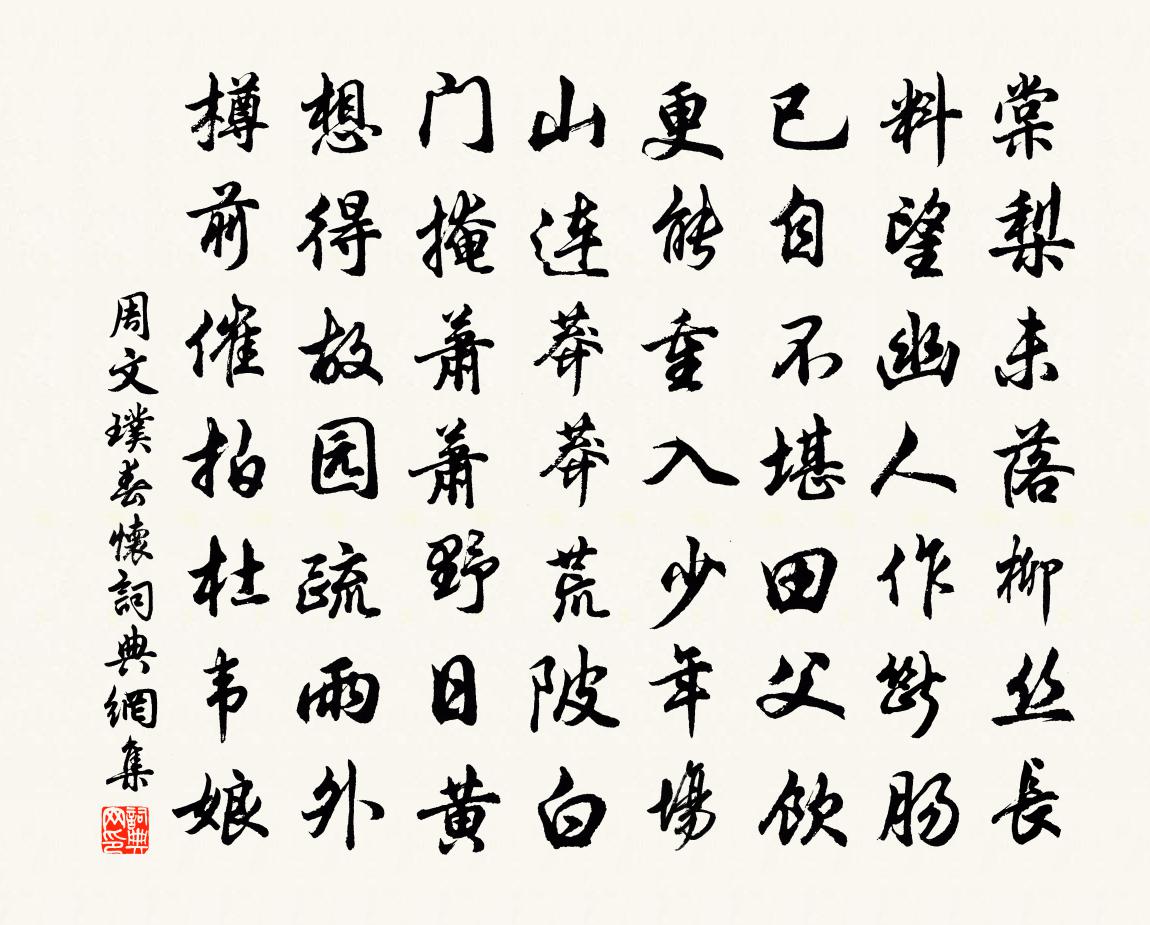 棠梨未落柳丝長
料望幽人作断肠
已自不堪田父飲
更能重入少年場
山连莽莽荒陂白
门掩萧萧野日黄
想得故园疏雨外
樽前催拍杜韦娘
周文璞春懷詞典網集
詞典网印